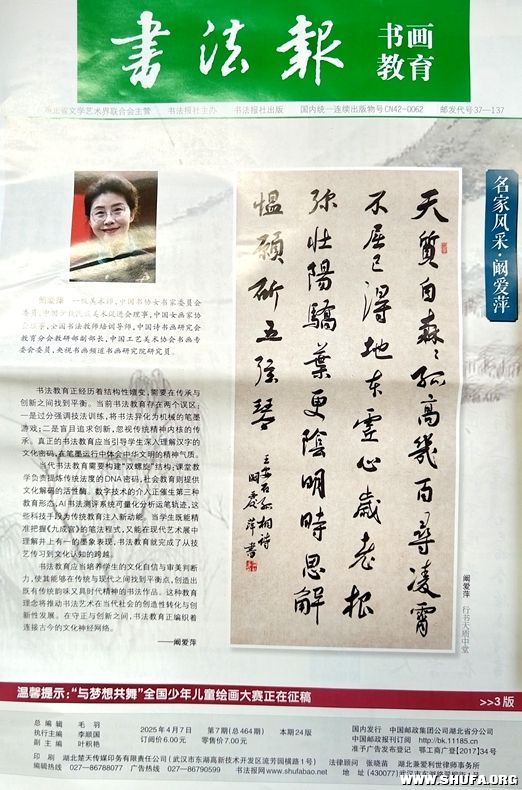 書法報
书画
教育
湖北省文学艺术界联合会主管 书法报社主办 书法报社出版 国内统一连续出版物号CN42-0062 邮发代号37—137
名家风采·阚爱萍
天質自森〻孤高幾百尋凌霄
不屈己得地本虛心歲老根
弥壯陽驕葉更陰明時思解
慍願斫五弦琴
王安石孤桐詩
阚爱萍 行书天质中堂
阚爱萍 一级美术师,中国书协女书家委员会
教育分会教研部副部长,中国工艺美术协会书画专
委会委员,央视书画频道书画研究院研究员。
书法教育正经历着结构性嬗变,需要在传承与
创新之间找到平衡。当前书法教育存在两个误区:
一是过分强调技法训练,将书法异化为机械的笔墨
游戏;二是盲目追求创新,忽视传统精神内核的传
承。真正的书法教育应当引导学生深入理解汉字的
文化密码,在笔墨运行中体会中华文明的精神气质。
当代书法教育需要构建“双螺旋”结构:课堂教
学负责提炼传统法度的DNA密码,社会教育则提供
文化解码的活性酶。数字技术的介入正催生第三种
教育形态,AI书法测评系统可量化分析运笔轨迹,这
些科技手段为传统教育注入新动能。当学生既能精
准把握《九成宫》的笔法程式,又能在现代艺术展中
理解井上有一的墨象表现,书法教育就完成了从技
艺传习到文化认知的跨越。
书法教育应当培养学生的文化自信与审美判断
力,使其能够在传统与现代之间找到平衡点,创造出
既有传统韵味又具时代精神的书法作品。这种教育
理念将推动书法艺术在当代社会的创造性转化与创
新性发展。在守正与创新之间,书法教育正编织着
连接古今的文化神经网络。
——阚爱萍
温馨提示:“与梦想共舞”全国少年儿童绘画大赛正在征稿 >>3版
总编辑 毛羽
执行主编 李顺国
副主编 叶积艳
2025年4月7日 第7期(总464期) 本期24版
订阅价6.00元 零售价7.00元
国内发行 中国邮政集团公司湖北省分公司
中国邮政报刊订阅 http://bk.11185.cn
准予广告发布登记 鄂工商广登【2017】34号
印刷 湖北楚天传媒印务有限责任公司(武汉市东湖高新技术开发区流芳园横路1号) 法律顾问 张晓苗 湖北兼爱利世律师事务所
编辑热线 027—86768077 广告热线 027—86790599 书法报网www.shufabao.net
WWW.SHUFA.ORG